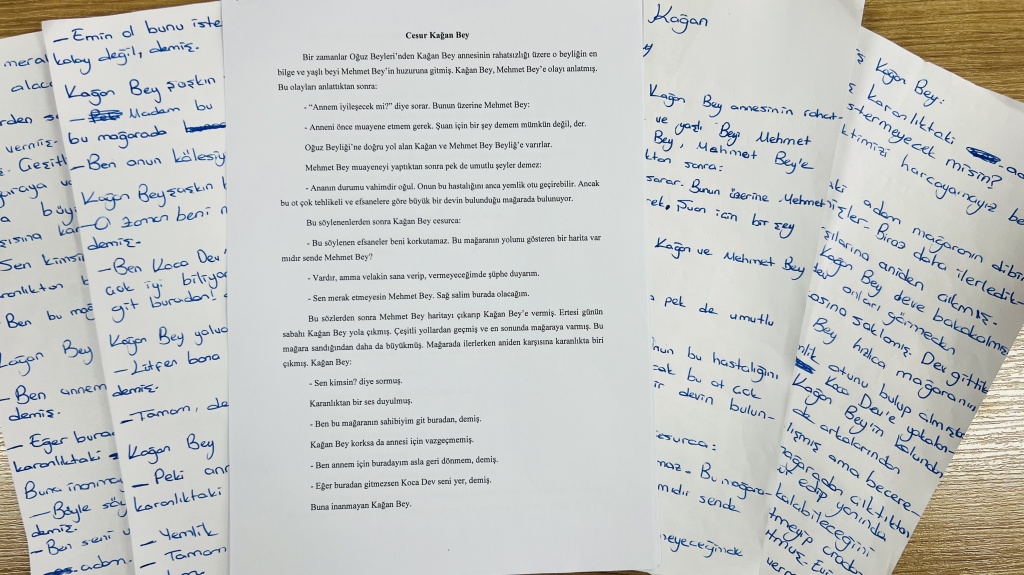 meral
alaca
rden s
vermiş.
. Çeşitl
araya va
a büyü
şısına kar
Sen kimsi
ranlıktan
Ben bu mağ
Kağan Bey
- Ben annem
demiş.
- Eğer bura
karanlıktaki
Buna inanma
- Böyle söy
demiş.
- Ben seni
adam.
- Emin ol bunu iste
kolay değil, demiş.
Kağan Bey şaşkın
- Madam bu
bu mağarada
- Ben onun kölesiy
Kağan Bey şaşkın
- O zaman beni
demiş.
- Ben Koca Dev'
çok iyi biliyor
git buradan!
Kağan Bey yolua
- Lütfen bana
demiş.
- Tamam, de
Kağan Bey
- Peki ann
karanlıktaki
- Yemlik
- Tamam
Cesur Kağan Bey
Bir zamanlar Oğuz Beyleri'nden Kağan Bey annesinin rahatsızlığı üzere o beyliğin en
bilge ve yaşlı beyi Mehmet Bey'in huzuruna gitmiş. Kağan Bey, Mehmet Bey'e olayı anlatmış.
Bu olayları anlattıktan sonra:
- "Annem iyileşecek mi?" diye sorar. Bunun üzerine Mehmet Bey:
- Anneni önce muayene etmem gerek. Şuan için bir şey demem mümkün değil, der.
Oğuz Beyliği'ne doğru yol alan Kağan ve Mehmet Bey Beyliğ'e varırlar.
Mehmet Bey muayeneyi yaptıktan sonra pek de umutlu şeyler demez:
- Ananın durumu vahimdir oğul. Onun bu hastalığını anca yemlik otu geçirebilir. Ancak
bu ot çok tehlikeli ve efsanelere göre büyük bir devin bulunduğu mağarada bulunuyor.
Bu söylenenlerden sonra Kağan Bey cesurca:
- Bu söylenen efsaneler beni korkutamaz. Bu mağaranın yolunu gösteren bir harita var
mıdır sende Mehmet Bey?
- Vardır, amma velakin sana verip, vermeyeceğimde şüphe duyarım.
- Sen merak etmeyesin Mehmet Bey. Sağ salim burada olacağım.
Bu sözlerden sonra Mehmet Bey haritayı çıkarıp Kağan Bey'e vermiş. Ertesi günün
sabahı Kağan Bey yola çıkmış. Çeşitli yollardan geçmiş ve en sonunda mağaraya varmış. Bu
mağara sandığından daha da büyükmüş. Mağarada ilerlerken aniden karşısına karanlıkta biri
çıkmış. Kağan Bey:
- Sen kimsin? diye sormuş.
Karanlıktan bir ses duyulmuş.
- Ben bu mağaranın sahibiyim git buradan, demiş.
Kağan Bey korksa da annesi için vazgeçmemiş.
- Ben annem için buradayım asla geri dönmem, demiş.
- Eğer buradan gitmezsen Koca Dev seni yer, demiş.
Buna inanmayan Kağan Bey.
Kağan
Kağan Bey annesinin rahat-
ve yaşlı Beyi Mehmet
Bey, Mehmet Bey'e
kten sonra:
sorar. Bunun üzerine Mehmet
rek, Şuan için bir şey
Kağan ve Mehmet Bey
pek de umutlu
nun bu hastalığını
cak bu ot çok
ir devin bulun-
esurca:
maz. Bu mağara-
mıdır sende
meyeceğimde
Kağan Bey:
karanlıktaki
stermeyecek misin?
ktimizi harcayamayız
adam mağaranın dibi
işler. Biraz daha ilerledik-
şılarına aniden çıkmış.
Kağan Bey deve bakakalmış
onları görmeden
asına saklamış. Dev gittik
Bey hızlıca mağaranın
otunu bulup almış
Koca Dev'e yakalan-
Kağan Bey'in kolundan
de arkalarından
lışmış ama becere-
ağaradan çıktıktan
ot edip yanında
kalabileceğini
tmeyip oradan